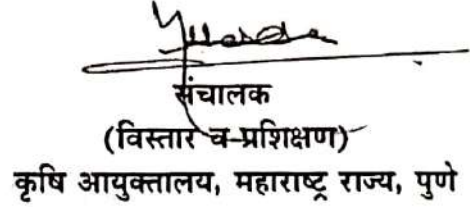 संचालक
(विस्तार व-प्रशिक्षण)
कृषि आयुक्तालय, महाराष्ट्र राज्य, पुणे